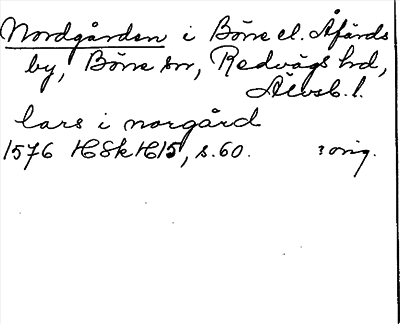 Nordgården i Börre el. Åfärds
by, Börre sn, Redvägs hd,
Älvsb. l.
lars i norgård
1576 HSkH15, s. 60. orig.